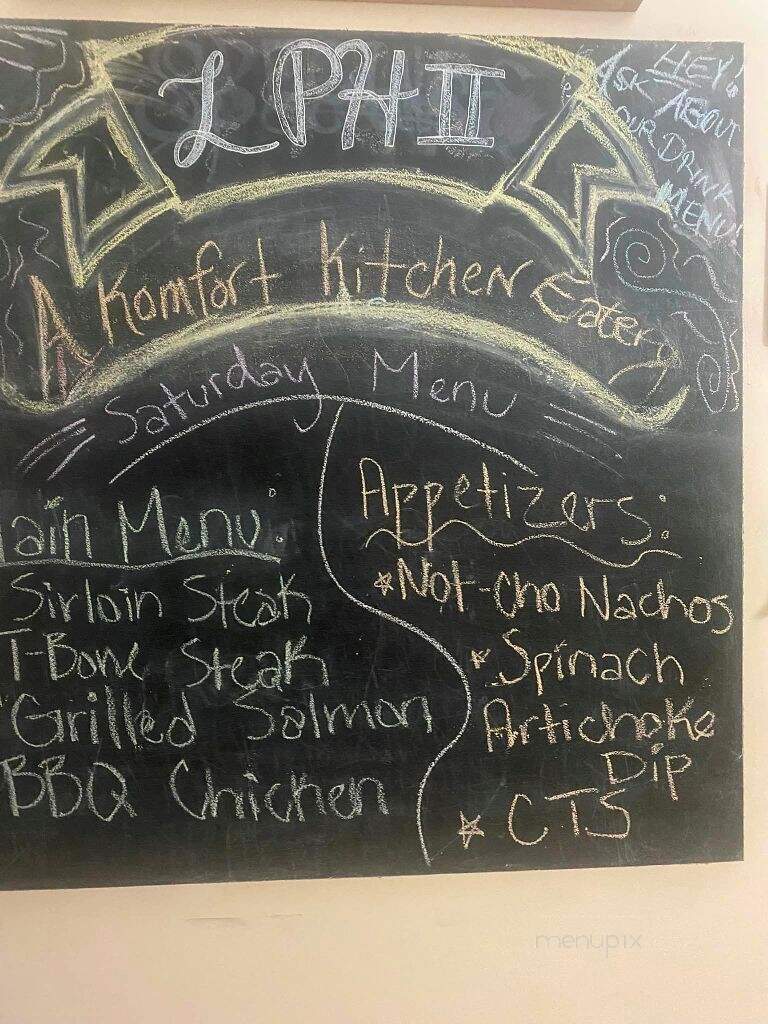 LPH II
HEY!
ASK ABOUT
OUR DRINK
MENU!
A Komfort Kitchen Eatery
Saturday Menu
ain Menu:
Sirloin Steak
T-Bone Steak
Grilled Salmon
BBQ Chicken
Appetizers:
Not-cho Nachos
Spinach
Artichoke
Dip
CTS
menupix